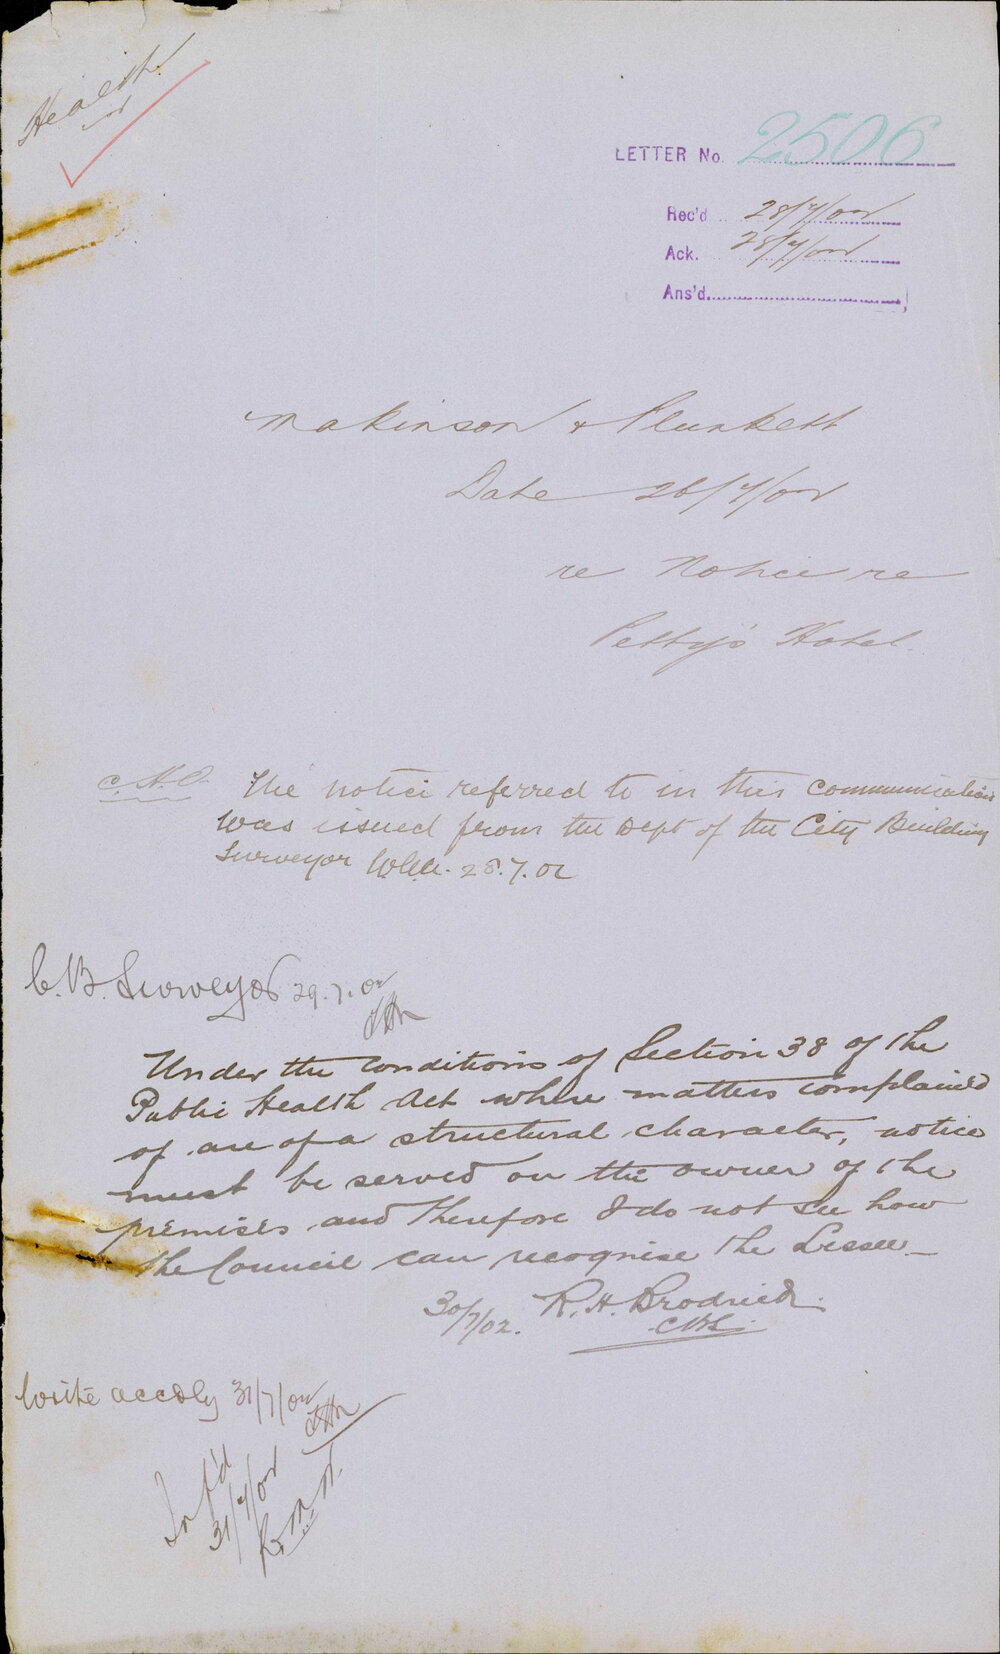 Health
LETTER No. 2506
Rec'd 28/7/02
Ack. 28/7/02
Ans'd.
Makinson & Plunkett
Date 26/7/02
re Notice re
Petty's Hotel.
C.H.O. The notice referred to in this communication
was issued from the Dept of the City Building
Surveyor 28.7.02
C.B. Surveyor 29.7.02
Under the conditions of Section 38 of the
Public Health Act where matters complained
of are of a structural character, notice
must be served on the owner of the
premises and therefore I do not see how
the Council can recognise the Lessee
30/7/02. R. H. Brodrick
CBS.
Write accdly 31/7/02
Inf'd
31/7/02